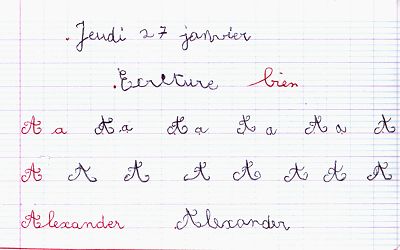 . Jeudi 27 janvier
. Ecriture bien
A a A a A a A a A a A
A A A A A A A A
Alexander Alexander